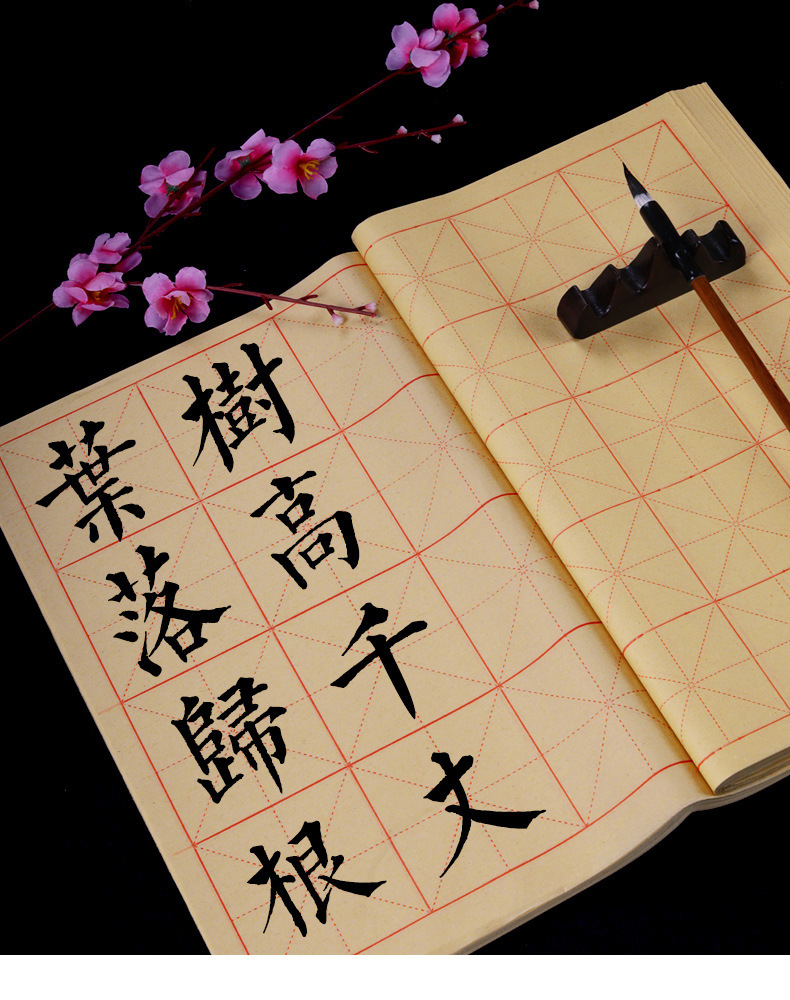 樹高千丈
葉落歸根